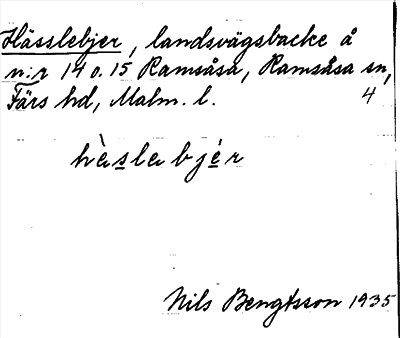 Hässlebjer, landsvägsbacke å
n:r 14 o. 15 Ramsåsa, Ramsåsa sn,
Färs hd, Malm. l. 4
hὰslabjér
Nils Bengtsson 1935